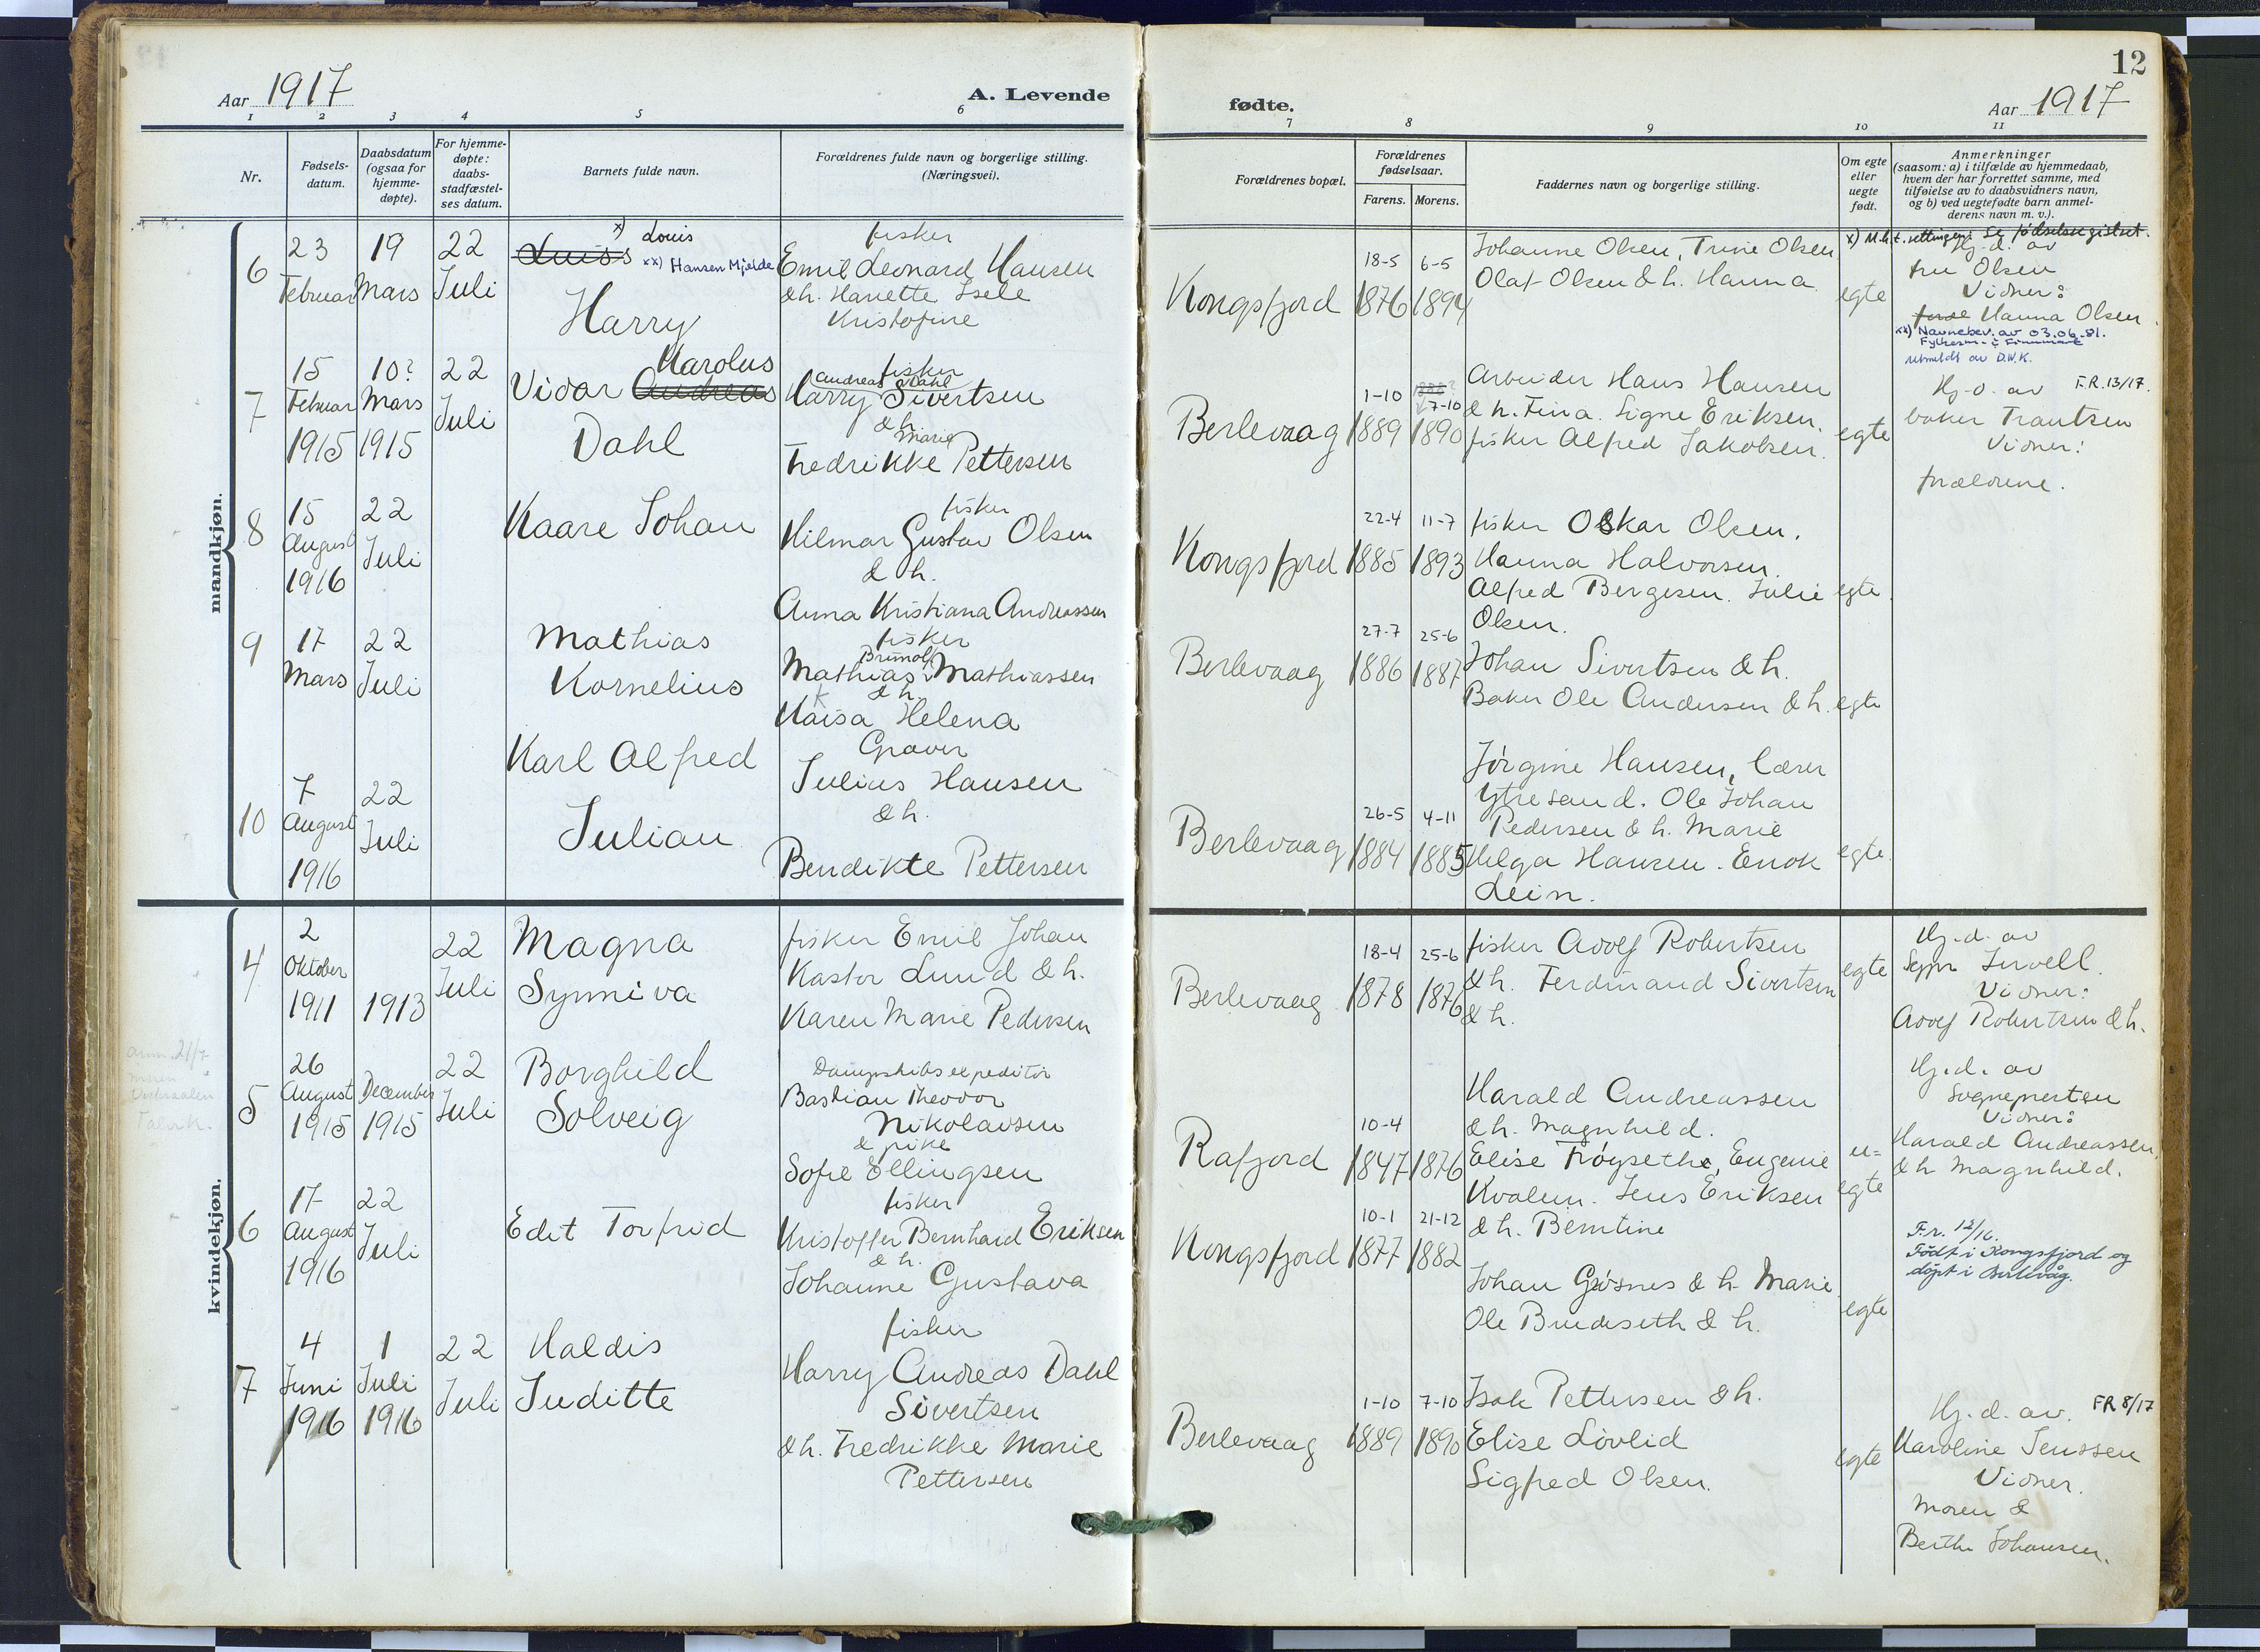 12
Aar 1917
A. Levende
fødte.
Aar 1917
1 2 3 4 5 6
7 8 9 10 11
Nr.
Fødsels-
datum.
Daabsdatum
(ogsaa for
hjemme-
døpte).
For hjemme-
døpte:
daabs-
stadfæstel-
ses datum.
Barnets fulde navn.
Forældrenes fulde navn og borgerlige stilling.
(Næringsvei).
Forældrenes bopæl.
Forældrenes
fødselsaar.
Farens. Morens.
Faddernes navn og borgerlige stilling.
Om egte
eller
uegte
født.
Anmerkninger
(saasom: a) i tilfælde av hjemmedaab,
hvem der har forrettet samme, med
tilføielse av to daabsvidners navn,
og b) ved uegtefødte barn anmel-
derens navn m. v.).
mandkjøn.
6
23
Februar
19
Mars
22
Juli
x) Louis
Luiss
xx) Hansen Mjelde
Harry
fisker
Emil Leonard Hansen
& h. Hanette Isele
Kristofine
Kongsfjord
18-5
1876
6-5
1894
Johanne Olsen, Trine Olsen
Olaf Olsen & h. Hanna
egte
x) M.h.t. rettingen: Se fødselsregistret.
Hj.d. av
fru Olsen
Vidner:
Hanna Olsen
xx) Navnebev. av 03.06.81.
Fylkesm. i Finnmark
utmeldt av D.N.K.
7
15
Februar
1915
10?
Mars
1915
22
Juli
Karolus
Vidar Andreas
Dahl
fisker
Andreas Dahl
Harry Sivertsen
& h.
Marie
Fredrikke Pettersen
Berlevaag
1-10
1889
7-10
1890
Arbeider Hans Hansen
& h. Fina. Signe Eriksen.
fisker Alfred Jakobsen.
egte
Hj-d. av F.R. 13/17.
baker Trautsen
Vidner:
forældrene.
8
15
August
1916
22
Juli
Kaare Johan
fisker
Hilmar Gustav Olsen
& h.
Anna Kristiana Andreassen
Kongsfjord
22-4
1885
11-7
1893
fisker Oskar Olsen.
Hanna Halvorsen.
Alfred Bergesen. Julie
Olsen.
egte.
9
17
Mars
22
Juli
Mathias
Kornelius
fisker
Brunolf
Mathias Mathiassen
& h.
K
Kaisa Helena
Berlevaag
27-7
1886
25-6
1887
Johan Sivertsen & h.
Baker Ole Andersen & h.
egte
10
7
August
1916
22
Juli
Karl Alfred
Julian
Graver
Julius Hansen
& h.
Bendikte Pettersen
Berlevaag
26-5
1884
4-11
1885
Jørgine Hansen, lærer
Ytresand. Ole Johan
Pedersen & h. Marie
Helga Hansen. Enok
Lein.
egte.
kvindekjøn.
4
2
Oktober
1911
1913
22
Juli
Magna
Synniva
fisker Emil Johan
Kastor Lund & h.
Karen Marie Pedersen
Berlevaag
18-4
1878
25-6
1876
fisker Adolf Robertsen
& h. Ferdinand Sivertsen
& h.
egte
Hj.d. av
Vidner:
Adolf Robertsen & h.
5
26
August
1915
December
1915
22
Juli
Borghild
Solveig
Dampskibsexpeditør
Bastian Theodor
Nikolaisen
& pike
Sofie Ellingsen
Rafjord
10-4
1847
1876
Harald Andreassen
& h. Magnhild.
Elise Frøysethe, Eugenie
Kvalum. Jens Eriksen
& h. Berntine
u=
egte
Hj.d. av
Sognepresten
Vidner:
Harald Andreassen
& h Magnhild.
6
17
August
1916
22
Juli
Edit Torfrid
fisker
Kristoffer Bernhard Eriksen
& h.
Johanne Gustava
Kongsfjord
10-1
1877
21-12
1882
Johan Gåsnes & h. Marie
Ole Bredeseth & h.
egte
F.r. 12/16.
Født i Kongsfjord og
døpt i Berlevåg.
7
4
Juni
1916
1
Juli
1916
22
Juli
Haldis
Juditte
fisker
Harry Andreas Dahl
Sivertsen
& h. Fredrikke Marie
Pettersen
Berlevaag
1-10
1889
7-10
1890
Isak Pettersen & h.
Elise Løvlid
Sigfred Olsen.
egte
Hj.d. av. FR 8/17
Karoline Jenssen
Vidner.
Moren &
Berthe Johansen.